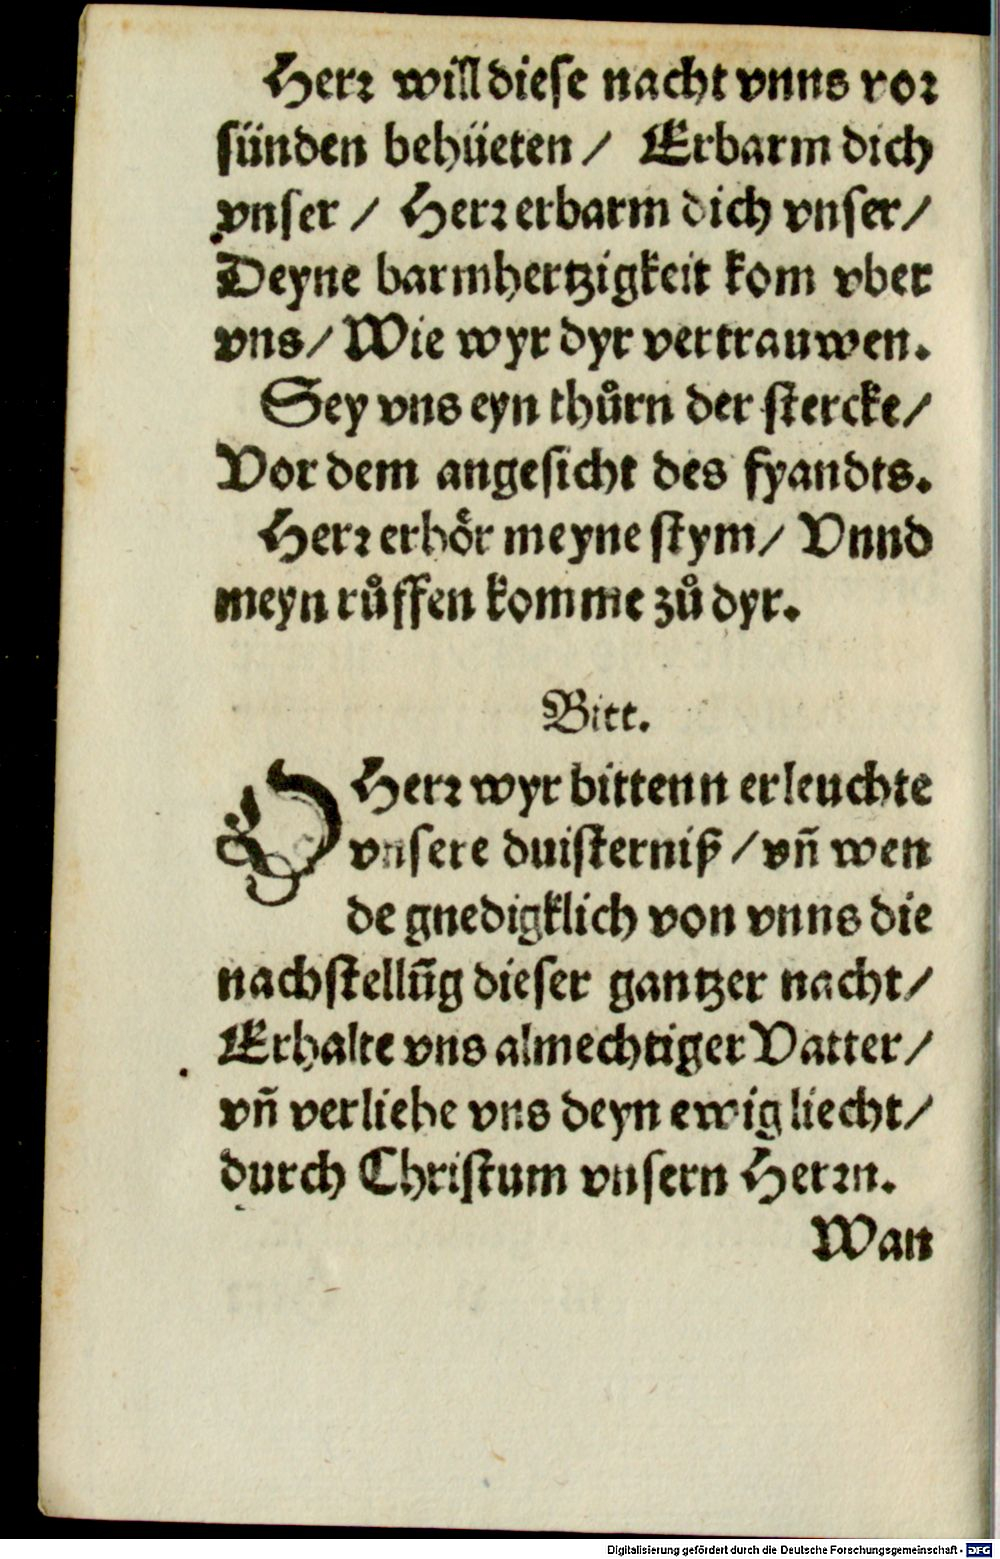 Herꝛ will dieſe nacht vnns voꝛ
ſünden behüeten / Erbarm dich
vnſer / Herꝛ erbarm dich vnſer /
Deyne barmhertzigkeit kom vber
vns / Wie wyr dyr vertrauwen.
Sey vns eyn thůrn der ſtercke /
Vor dem angeſicht des fyandts.
Herꝛ erhoͤr meyne ſtym / Vnnd
meyn růffen komme zů dyr.
Bitt.
O Herꝛ wyr bittenn erleuchte
vnſere duiſterniß / vn̄ wen
de gnedigklich von vnns die
nachſtellūg dieſer gantzer nacht /
Erhalte vns almechtiger Vatter /
vn̄ verliehe vns deyn ewig liecht /
durch Chriſtum vnſern Herꝛn.
Wan
Digitalisierung gefördert durch die Deutsche Forschungsgemeinschaft - DFG